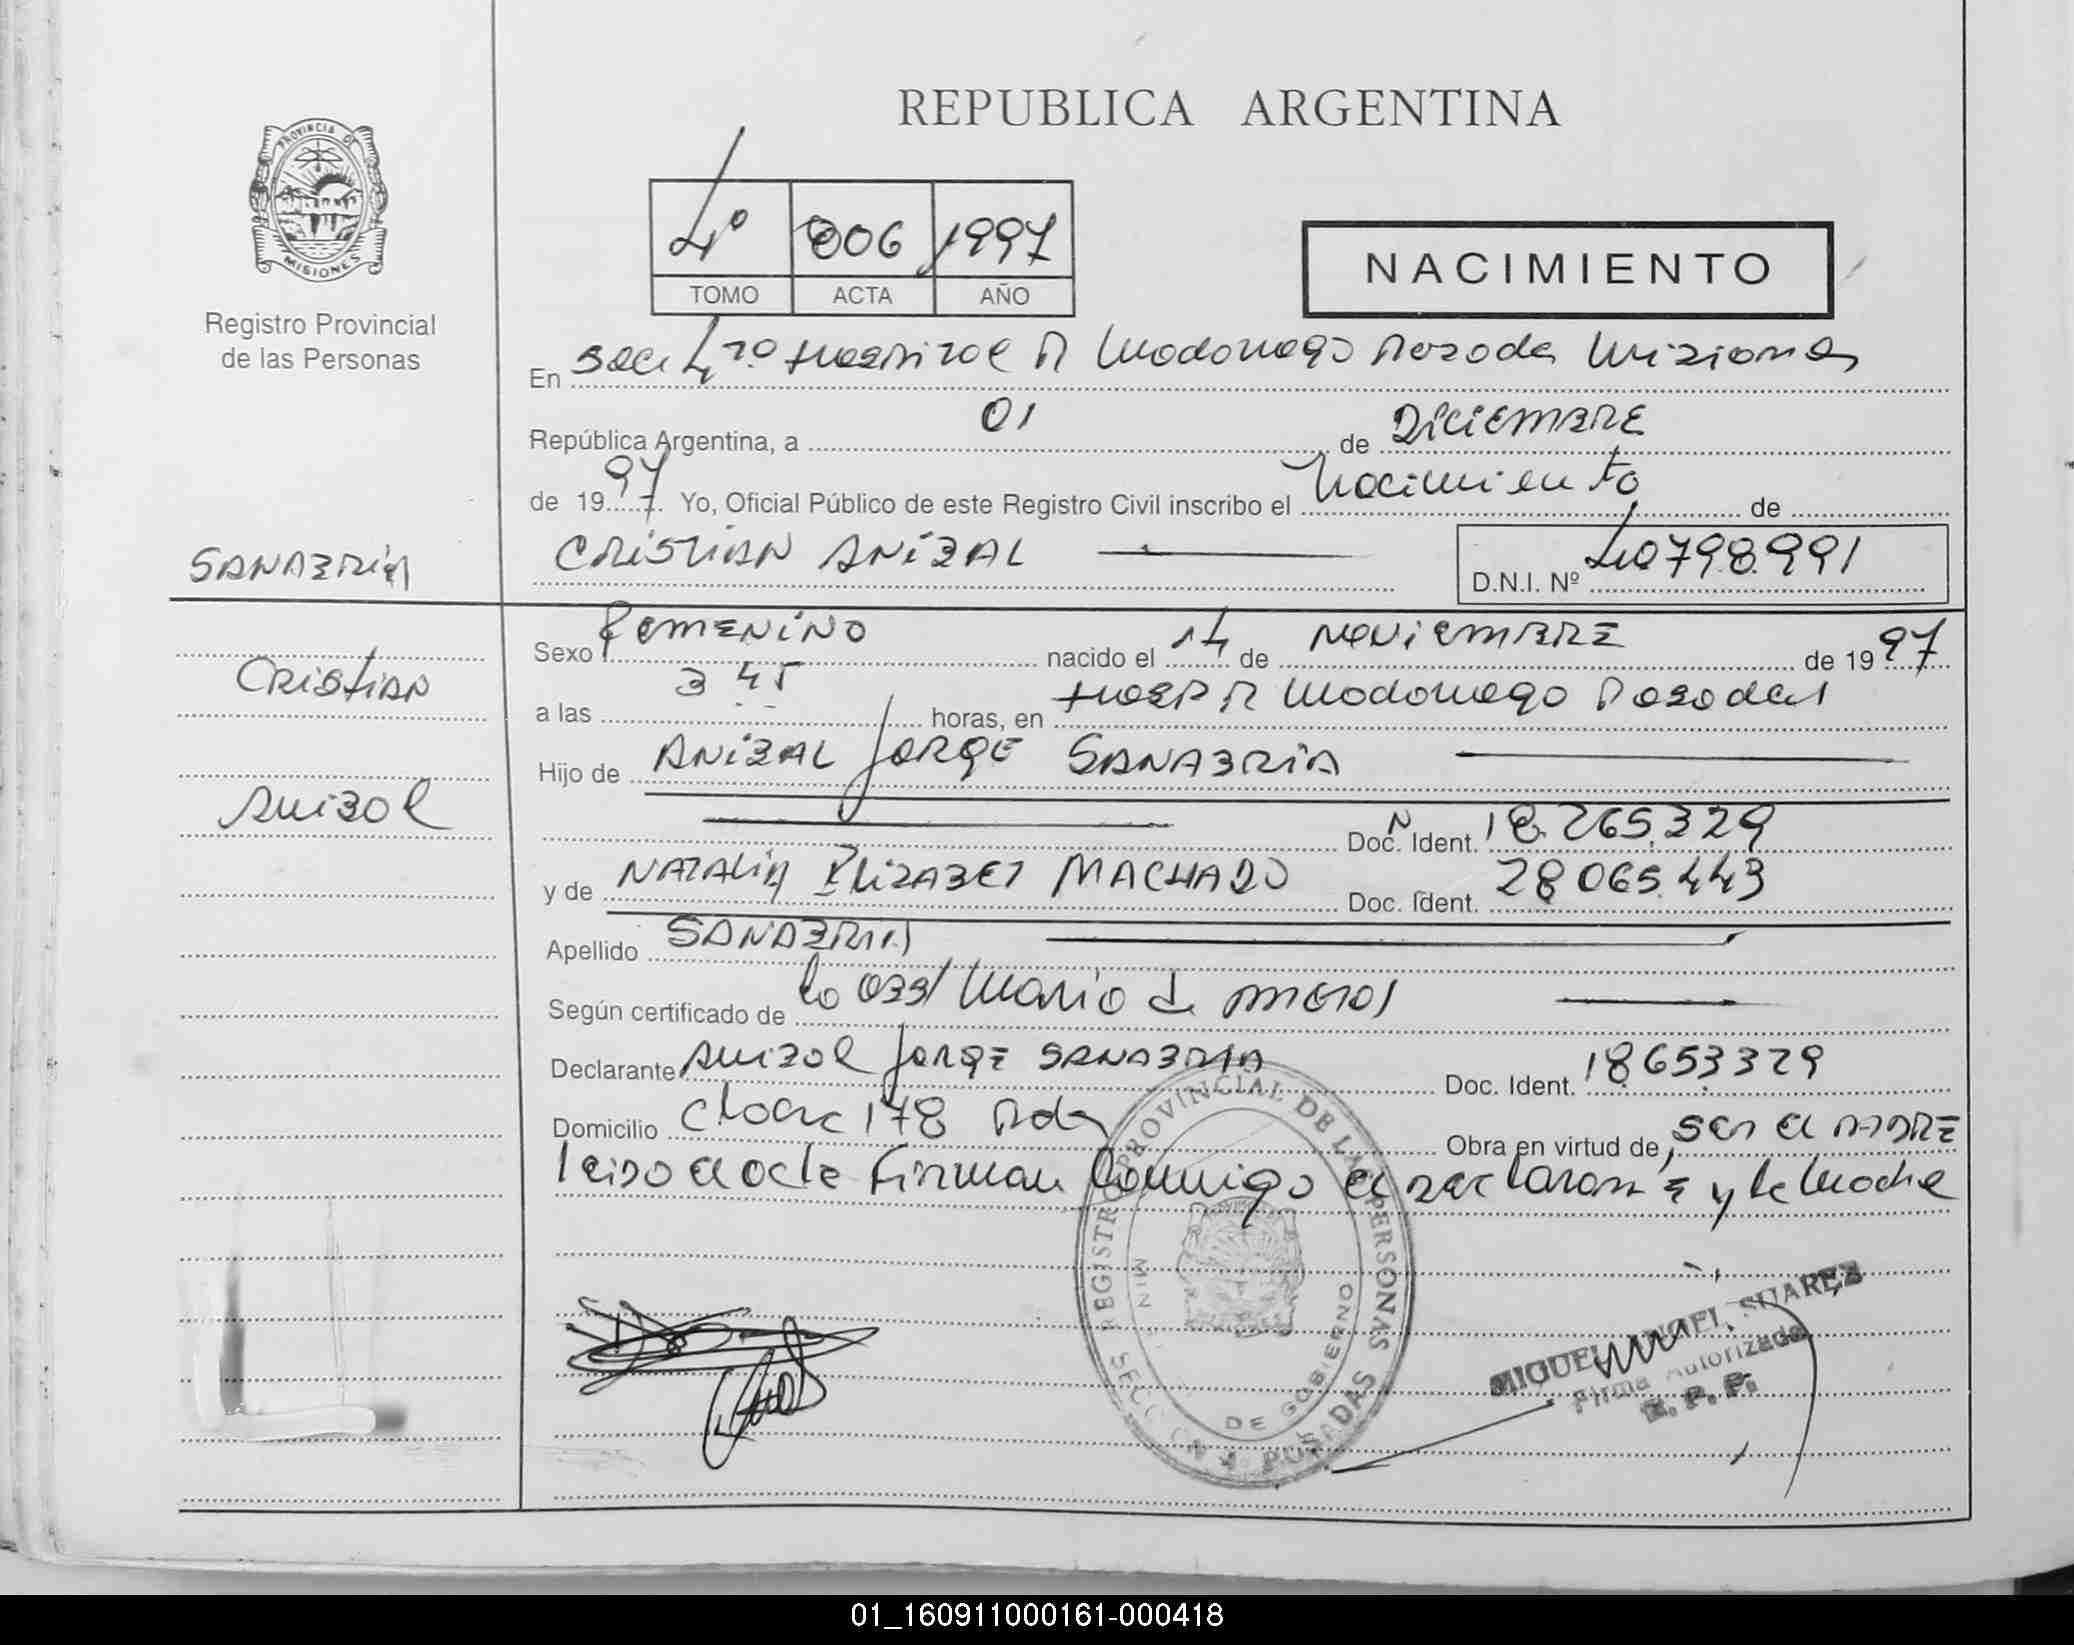 REPUBLICA ARGENTINA
PROVINCIA DE
MISIONES
Registro Provincial
de las Personas
4º 006 1997
TOMO ACTA AÑO
NACIMIENTO
En Secc 4ta Hospital R Madariaga Posadas Misiones
República Argentina, a 01 de DICIEMBRE
de 1997. Yo, Oficial Público de este Registro Civil inscribo el Nacimiento de
SANABRIA
CRISTIAN ANIBAL
D.N.I. Nº 40798.991
Sexo FEMENINO nacido el 14 de NOVIEMBRE de 1997
Cristian
a las 3 45 horas, en Hosp R Madariaga Posadas
Hijo de ANIBAL JORGE SANABRIA
Anibal
Doc. Ident. 18.265.329
y de NATALIA ELIZABET MACHADO Doc. Ident. 28065.443
Apellido SANABRIA
Según certificado de la obst Mario de
Declarante Anibal JORGE SANABRIA Doc. Ident. 18653329
Domicilio Chac 178 Pdas Obra en virtud de ser el PADRE
leido el acta Firman Conmigo el declarante y la Madre
REGISTRO PROVINCIAL DE LAS PERSONAS
MIN DE GOBIERNO
SECCION 4 POSADAS
MIGUEL ANGEL SUAREZ
Firma Autorizada
R. P. P.
01_160911000161-000418